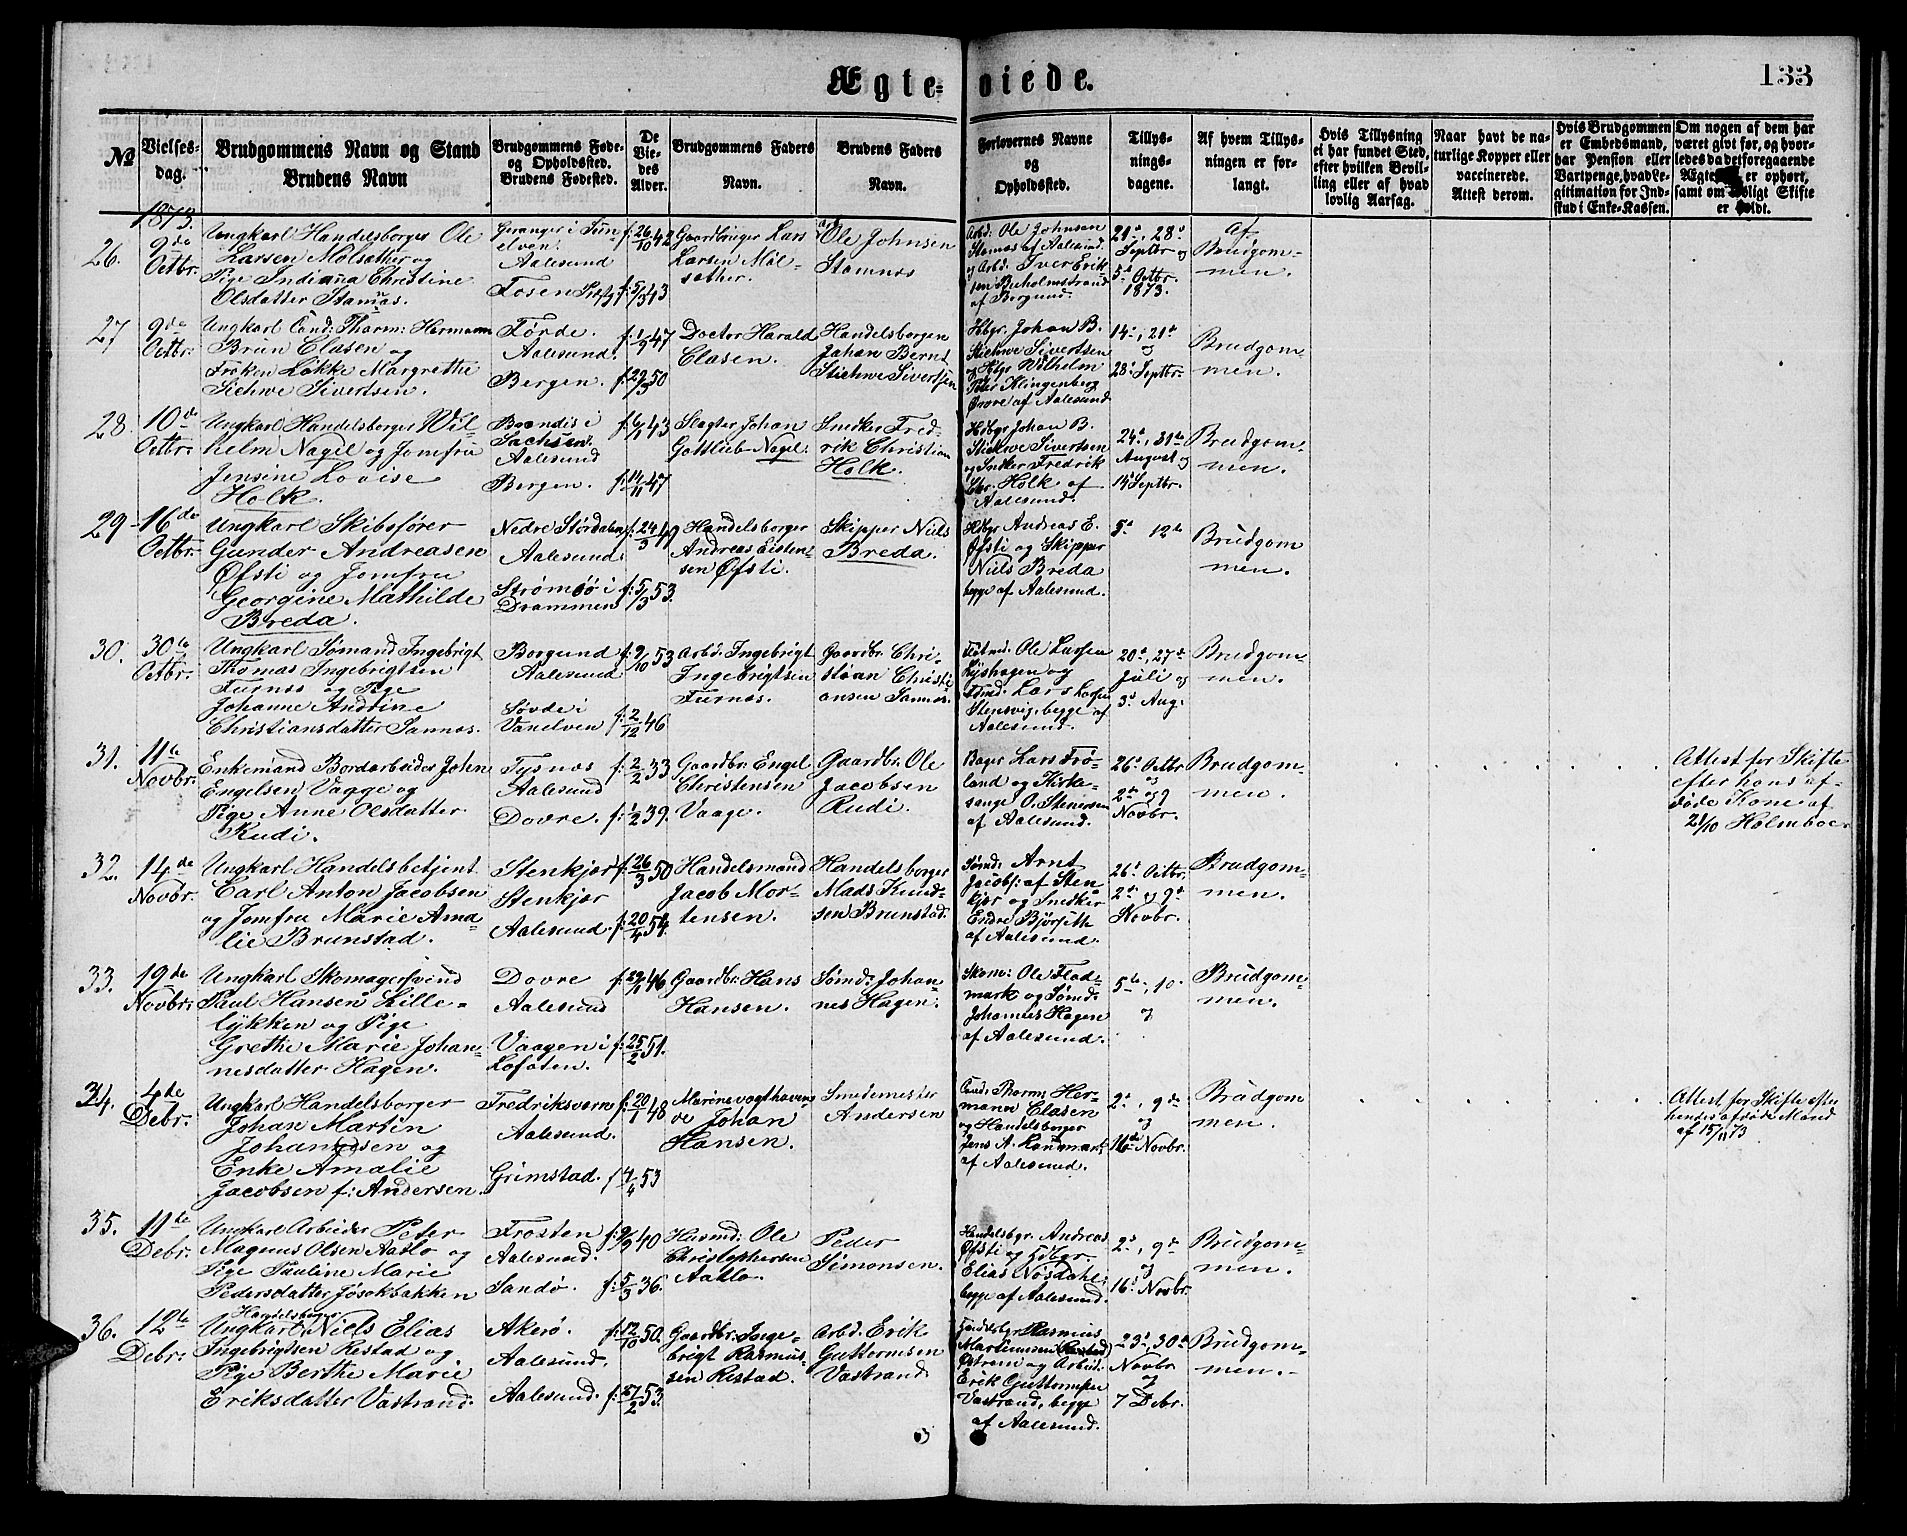 Ægte=
viede.
133
№
Vielses-
dag.
Brudgommens Navn og Stand
Brudens Navn
Brudgommens Føde-
og Opholdssted.
Brudens Fødested.
De
Vie-
des
Alder.
Brudgommens Faders
Navn.
Brudens Faders
Navn.
Forlovernes Navne
og
Opholdssted.
Tillys-
nings-
dagene.
Af hvem Tillys-
ningen er for-
langt.
Hvis Tillysning
ei har fundet Sted,
efter hvilken Bevil-
ling eller af hvad
lovlig Aarsag.
Naar havt de na-
turlige Kopper eller
vaccinerede.
Attest derom.
Hvis Brudgommen
er Embedsmand,
har Pension eller
Vartpenge, hvad Le-
gitimation for Ind-
skud i Enke-Kassen.
Om nogen af dem har
været givt før, og hvor-
ledes da det foregaaende
er ophørt,
samt om Skifte
er holdt.
1873.
26.
9de
Octbr.
Ungkarl Handelsborger Ole
Larsen Mølsæther og
Pige Indianna Christine
Olsdatter Stamnas.
Geranger i
Aalesund
Fosen
f: 26/10 42
f: 5/3 43
Gaardbruger Lars
Larsen Møl-
sæther.
Ole Johnsen
Stamnæs
Arbd: Ole Johnsen
Stamnæs af Aalesund
og Arbd. Iver Erik-
sen Buholmstrand
af Borgund.
21d, 28d
Septbr og
5d Octbr.
1873.
af
Brudgom-
men.
27
9de
Octbr.
Ungkarl Cand: Tharm: Hermann
Brun Clasen og
Frøken Løkke Margrethe
Stehwe Sivertsen.
Førde.
Aalesund.
Bergen.
f: 1/9 47
f: 29/3 50
Doctor Harald
Clasen.
Handelsborger
Johan Bernt
Stiehwe Sivertsen
Hbgr. Johan B.
Stiehwe Sivertsen
og Hbgr Wilhelm
Peter Klingenberg
af Aalesund
14d, 21d
og
28d Septbr.
Brudgom-
men.
28.
10de
Octbr.
Ungkarl Handelsborger Wil-
helm Nagel og Jomfru
Jensine Lovise
Holk.
Brandis i
Sachsen.
Aalesund
Bergen.
43
f: 14/11 47
Slagter Johan
Gottlieb Nagel.
Snedker Fred-
rik Christian
Holk.
Hdbgr Johan B.
Stiehwe Sivertsen
og Snedker Fredrik
Chr. Holk af
Aalesund.
24d, 31d
August og
14 Septbr.
Brudgom-
men.
29
16de
Octbr.
Ungkarl Skibsfører
Gunder Andreasen
Øfsti og Jomfru
Georgine Mathilde
Breda.
Nedre Størdalen
Aalesund.
Strømsø i
Drammen
f: 24/3 49
f: 5/3 53.
Handelsborger
Andreas Eisten-
sen Øfsti.
Skipper Niels
Breda.
Hdbgr Andreas E.
Øfsti og Skipper
Niels Breda
begge af Aalesund.
5d 12d
Brudgom
men.
30.
30te
Octbr.
Ungkarl Sømand Ingebrigt
Thomas Ingebrigtsen
Furnæs og Pige
Johanne Andrine
Christiansdatter Sannæs.
Borgund
Aalesund
Søvde i
Vanelven
f: 9/10 53
f: 2/12 46
Arbd. Ingebrigt
Ingebrigtsen
Furnæs.
Gaardbr. Chri-
stian Christi-
ansen Sannæs.
Ole Larsen
og
Lars Larsen
Stensvig, begge af
Aalesund.
20d, 27d
Juli og
3d Aug.
Brudgom-
men.
31.
11te
Novbr.
Enkemand Bordarbeider John
Engelsen Vaage og
Pige Anne Olsdatter
Rudi.
Tysnæs
Aalesund
Dovre.
f: 2/2 33
f: 1/2 39.
Gaardbr. Engel
Christensen
Vaage.
Gaardbr. Ole
Jacobsen
Rudi.
Bager Lars Frø-
land og Kirke-
sanger O. Stenersen
af Aalesund.
26d Octbr
og
2d og 9
Novbr.
Brudgom-
men.
Attest for Skifte
efter hans af-
døde Kone af
21/10 Holmboe.
32.
14de
Novbr.
Ungkarl Handelsbetjent
Carl Anton Jacobsen
og Jomfru Marie Ama-
lie Brunstad.
Stenkjær
Stenkjær
Aalesund.
f: 26/3 50
f: 20/4 54.
Handelsmand
Jacob Mor-
tensen.
Handelsborger
Mads Knud-
sen Brunstad.
Sømd: Arnt
Jacobs: af Sten
kjær og Snedker
Endre Bjørseth
af Aalesund.
26d Octbr.
2d og 9d
Novbr.
Brudgom-
men.
33.
19de
Novbr.
Ungkarl Skomagersvend
Paul Hansen Lille-
lykken og Pige
Grethe Marie Johan-
nesdatter Hagen.
Dovre
Aalesund
Vaagen i
Lofoten.
46
f: 25/2 51.
Gaardbr: Hans
Hansen.
Sømd: Johan-
nes Hagen.
Skom: Ole Flad-
mark og Sømd:
Johannes Hagen
af Aalesund.
5te, 10.
og
Brudgom-
men.
34.
4de
Debr.
Ungkarl Handelsborger
Johan Martin
Johannesen og
Enke Amalie
Jacobsen f: Andersen.
Fredriksværn
Aalesund.
Grimstad.
f: 20/1 48
f 4/4 53
Johan
Hansen.
Smedemester
Andersen
Cand: Tharm: Her-
mann Clasen
og Handelsborger
Jens A.
af Aalesund.
2d, 9de
og
16de Novbr.
Brudgom
men.
Attest for Skifte efter
hendes afdøde Mand
af 15/11 73
35.
11te
Debr.
Ungkarl Arbeider Peter
Magnus Olsen Aatlo og
Pige Pauline Marie
Pedersdatter Jøsokbakken
Frosten
Aalesund.
Sandø.
f: 9/9 40
f: 5/3 36.
Husmd: Ole
Christophersen
Aatlo.
Peder
Simonsen.
Handelsbgr. Andreas
Øfsti og Hdbgr
Elias Nøsdahl,
begge af Aalesund.
2d, 9d
og
16d Novbr.
Brudgom-
men.
36.
12te
Debr.
Handelsborger
Ungkarl Niels Elias
Ingebrigtsen Restad og
Pige Berthe Marie
Eriksdatter Vastrand.
Akerø.
Aalesund.
Aalesund.
f: 12/10 50.
53.
Gaardbr. Inge-
brigt Rasmus-
sen Restad.
Arbd. Erik
Guttormsen
Vastrand
Handelsbgr Rasmus
Martinussen (Restad)
Østrem og Arbeid.
Erik Guttormsen
Vastrand, begge
af Aalesund.
23d, 30d
Novbr
og
7 Debr.
Brudgom-
men.